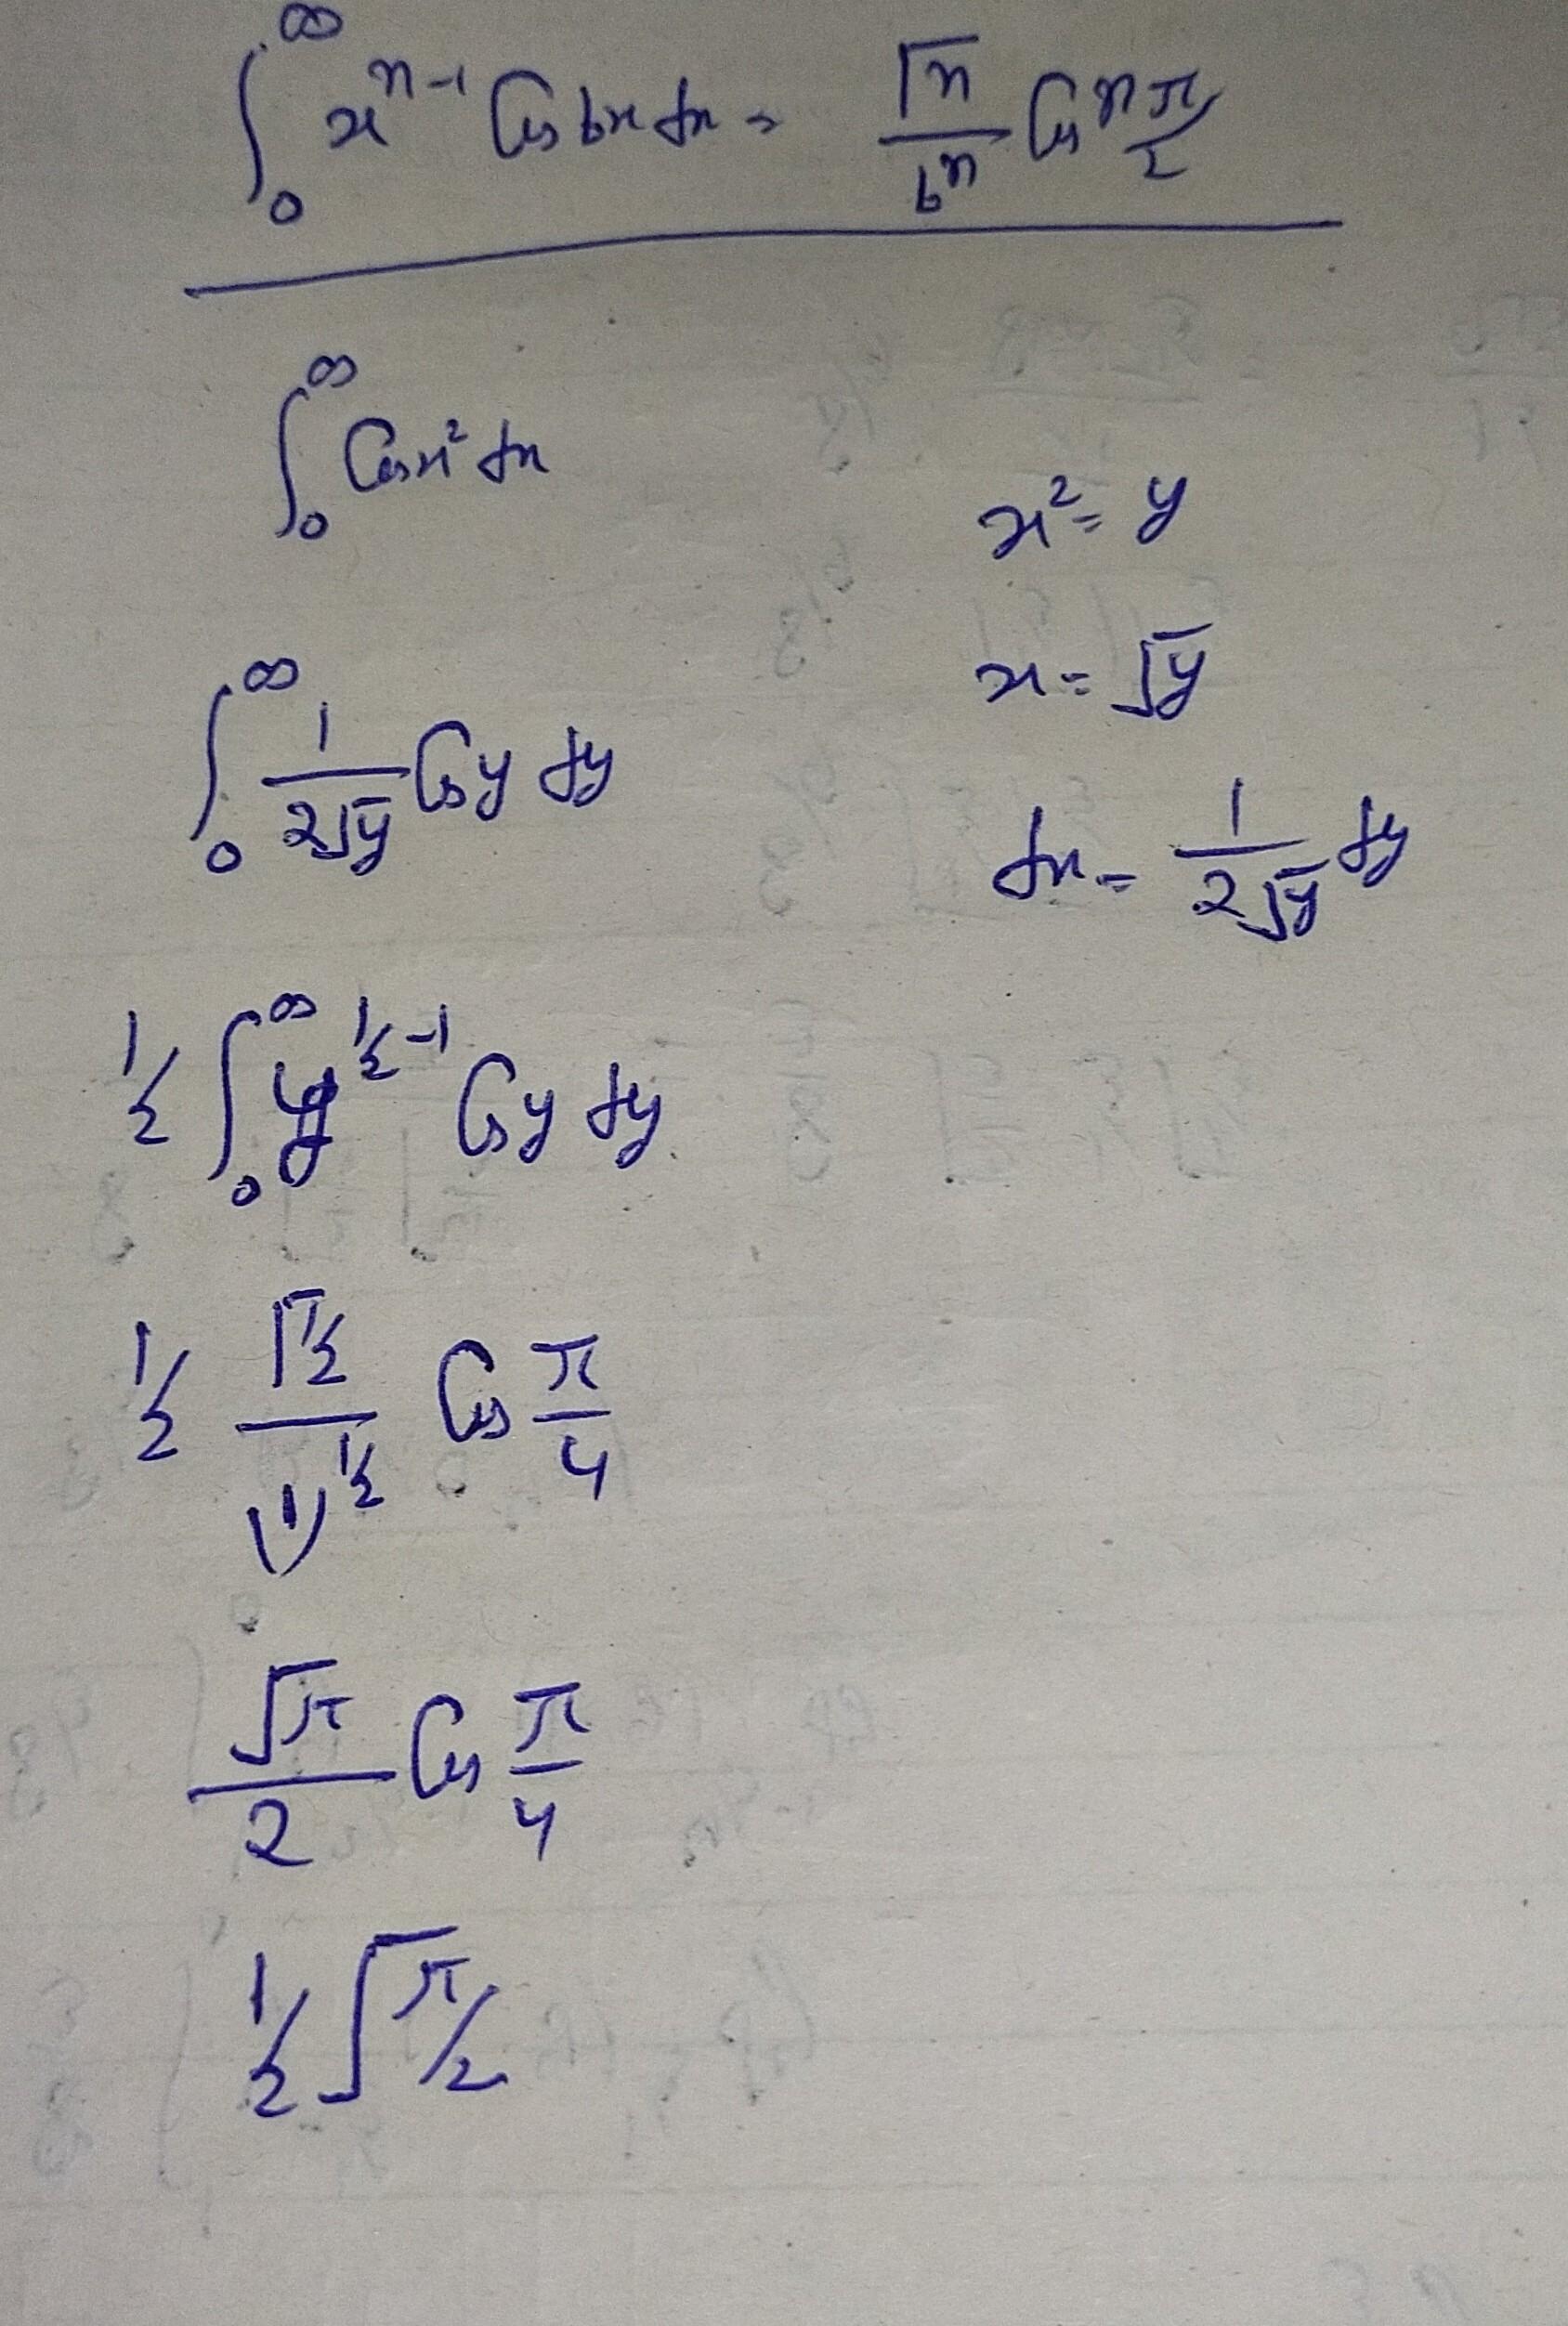 ∫₀^∞ x^(n-1) Cos bx dx = Γn/b^n Cos nπ/2
∫₀^∞ Cos x² dx
x² = y
x = √y
∫₀^∞ 1/(2√y) Cos y dy
dx = 1/(2√y) dy
1/2 ∫₀^∞ y^(1/2-1) Cos y dy
1/2 Γ1/2/(1)^(1/2) Cos π/4
√π/2 Cos π/4
1/2 √π/2